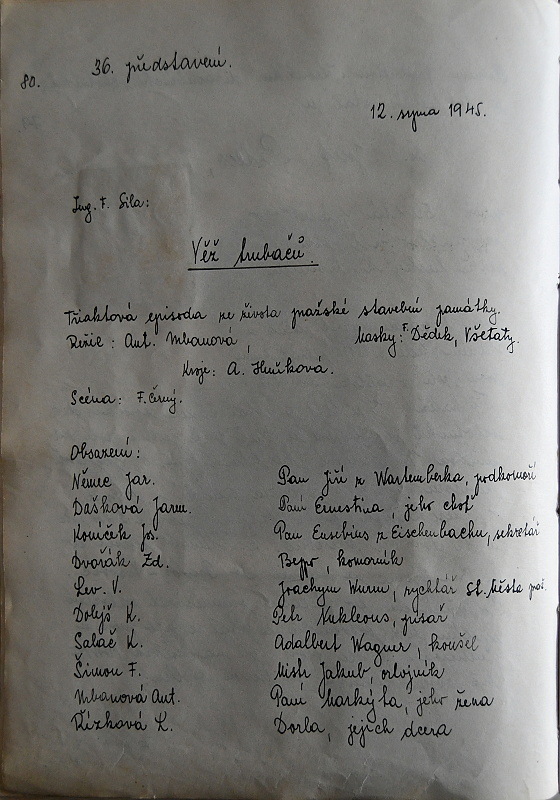 80.
36. představení.
12. srpna 1945.
Ing. F. Sila:
Věž trubačů.
Tříaktová episoda ze života pražské stavební památky.
Režie: Ant. Urbanová, Masky: F. Dědek, Všetaty.
Kroje: A. Hniková.
Scéna: F. Černý.
Obsazení:
Němec Jar. Pan Jiří z Wartemberka, podkomoří
Dašková Jarm. Paní Ernestina, jeho choť
Koníček Jos. Pan Eusebius z Eischenbachu, sekretář
Dvořák Zd. Beppo, komorník
Lev. V. Joachym Wurm, rychtář St. Města praž.
Dolejš K. Petr Nukleous, písař
Salač K. Adalbert Wagner, konšel
Šimon F. Mistr Jakub, orlojník
Urbanová Ant. Paní Markyta, jeho žena
Řízková L. Dorla, jejich dcera